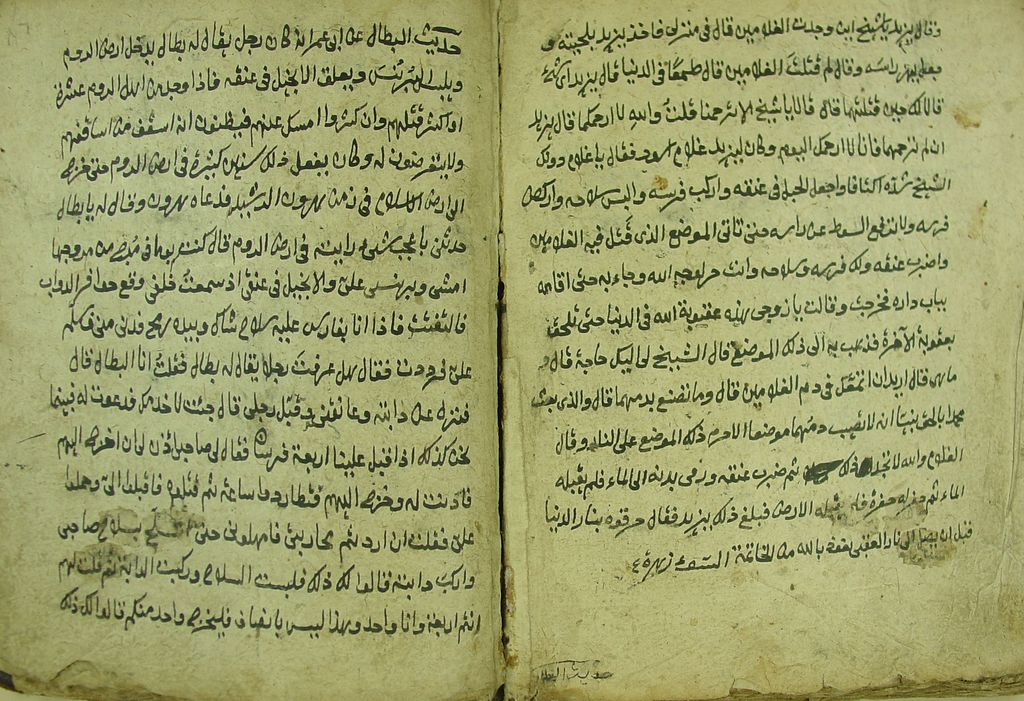 وقال يزيد يا شيخ اين وجدت الغلامين قال في منزلي فاخذ يزيد بلحيته و
راسه وقال لم قتلت الغلامين قال طمعا في الدنيا قال يزيد اي شئ
قالا لك حين قتلتهما قال قالا يا شيخ الا ترحمنا قلت والله لا ارحمكما قال يزيد
ان لم ترحمهما فانا لا ارحمك اليوم وكان ليزيد غلام اسود فقال يا غلام دونك
الشيخ شد اكتافه واجعل الحبل في عنقه واركب فرسه والبس سلاحه واركض
فرسه ولا ترفع السوط عن راسه حتى تاتي الموضع الذي قتل فيه الغلامين
واضرب عنقه ولك فرسه وسلاحه وانت حر لوجه الله وجاء به حتى اقامه
بباب داره فخرجت وقالت يا زوجي هذه عقوبة الله في الدنيا حتى تلحق
بعقوبة الآخرة فذهب به الى ذلك الموضع قال الشيخ لي اليك حاجة قال و
ما هي قال اريد ان اتمعك في دم الغلامين قال وما تصنع بدمهما قال والذي بعث
محمدا بالحق نبيا انه لا تصيب دمهما موضعا الا حرم ذلك الموضع على النار وقال
الغلام والله لا ذلك ثم ضرب عنقه ورمى بدنه الى الماء فلم يقبله
الماء ثم حفر له حفرة فلم تقبله الارض فبلغ ذلك يزيد فقال حرقوه بنار الدنيا
قبل ان يصل الى نار العقبى نعوذ بالله من الخاتمة السوء
حديث البطال
حديث البطال عن ابي عمر انه كان رجل يقال له بطال يدخل ارض الروم
ويلبس البرنس ويعلق الانجيل في عنقه فاذا وجد من اهل الروم عشرة
او اكثر قتلهم وان كثروا امسك عنهم فيظنون انه اسقف من اساقفهم
ولا يتعرضون له وكان يفعل ذلك سنين كثيرة في ارض الروم حتى خرج
الى ارض الاسلام في زمن هرون الرشيد فدعاه هرون وقال له يا بطال
حدثني باعجب شيء رايته في ارض الروم قال كنت يوما في مرج من مروجها
امشي وبرنسي علي والانجيل في عنقي اذ سمعت خلفي وقع حوافر الدواب
فالتفت فاذا انا بفارس عليه سلاح شاك وبيده رمح فدنى مني فسلم
علي فرددت فقال هل عرفت رجلا يقال له بطال فقلت انا البطال قال
فنزل عن دابته وعانقني وقبل رجلي قال جئت لاخدمك فدعوت له فبينما
نحن كذلك اذا اقبل علينا اربعة فرسان فقال لي صاحبي اذن لي ان اخرج اليهم
فاذنت له وخرج اليهم فتطاردوا ساعة ثم قتلوه فاقبلوا الي وحملوا
علي فقلت ان اردتم محاربتي فامهلوني حتى بسلاح صاحبي
واركب دابته قالوا لك ذلك فلبست السلاح وركبت الدابة ثم قلت لهم
انتم اربعة وانا واحد وهذا ليس بانصاف فليخرج واحد منكم قالوا لك ذلك